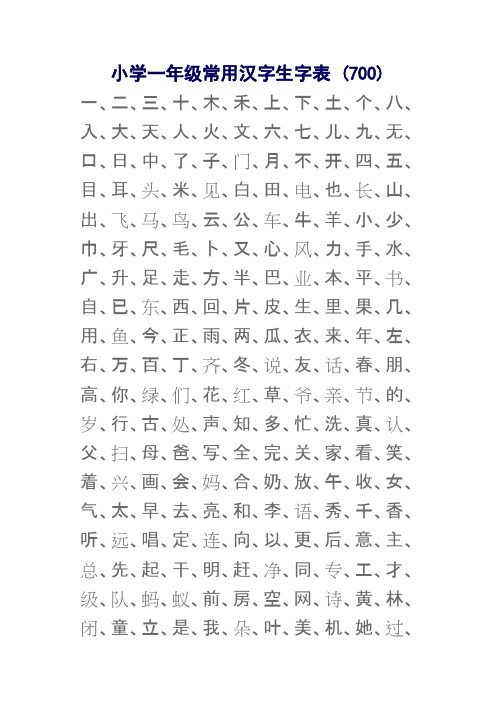 小学一年级常用汉字生字表 (700)
一、二、三、十、木、禾、上、下、土、个、八、
入、大、天、人、火、文、六、七、儿、九、无、
口、日、中、了、子、门、月、不、开、四、五、
目、耳、头、米、见、白、田、电、也、长、山、
出、飞、马、鸟、云、公、车、牛、羊、小、少、
巾、牙、尺、毛、卜、又、心、风、力、手、水、
广、升、足、走、方、半、巴、业、本、平、书、
自、已、东、西、回、片、皮、生、里、果、几、
用、鱼、今、正、雨、两、瓜、衣、来、年、左、
右、万、百、丁、齐、冬、说、友、话、春、朋、
高、你、绿、们、花、红、草、爷、亲、节、的、
岁、行、古、处、声、知、多、忙、洗、真、认、
父、扫、母、爸、写、全、完、关、家、看、笑、
着、兴、画、会、妈、合、奶、放、午、收、女、
气、太、早、去、亮、和、李、语、秀、千、香、
听、远、唱、定、连、向、以、更、后、意、主、
总、先、起、干、明、赶、净、同、专、工、才、
级、队、蚂、蚁、前、房、空、网、诗、黄、林、
闭、童、立、是、我、朵、叶、美、机、她、过、